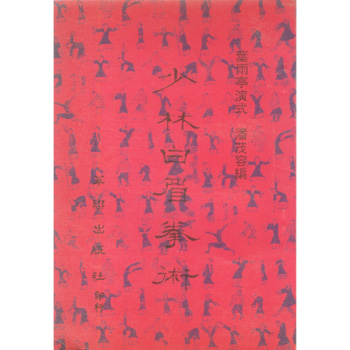 葉雨亭演式 潘茂容編
少林白眉拳術
出版社印行